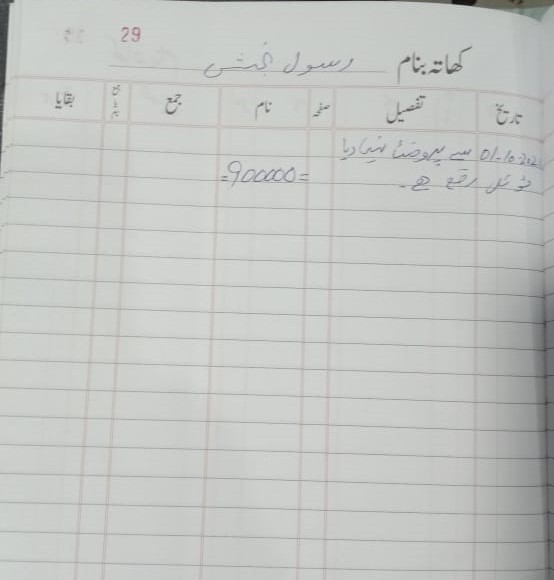 29
کھاتہ بنام رسول بخش
تاریخ تفصیل صفحہ نام جمع بقایا
01-10-202 سے پروفٹ نہیں دیا
ٹوٹل رقم ہے۔ =900000=